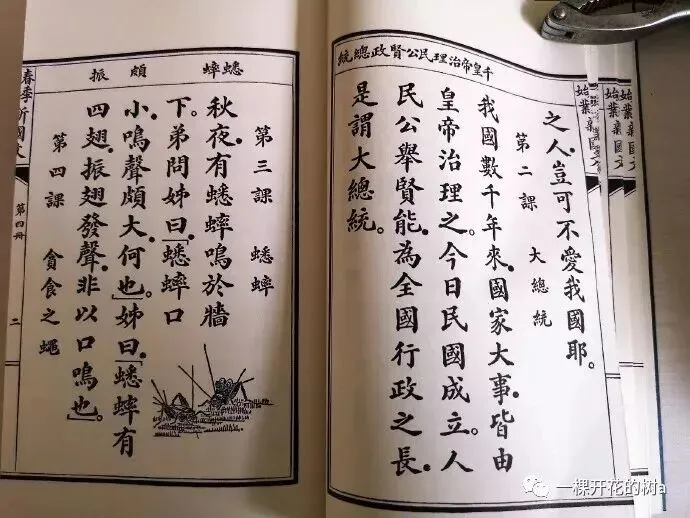 千皇帝治理民公賢政總統
之人。豈可不愛我國耶。
第二課 大總統
我國數千年來。國家大事。皆由
皇帝治理之。今日民國成立。人
民公舉賢能。為全國行政之長。
是謂大總統。
蟋蟀 頗 振
第三課 蟋蟀
秋夜。有蟋蟀鳴於牆
下。弟問姊曰。「蟋蟀口
小。鳴聲頗大。何也。」姊曰。「蟋蟀有
四翅。振翅發聲。非以口鳴也。」
第四課 貪食之蠅
春季新國文
第四冊
二
始業新國文
始業新國文
一棵开花的树a